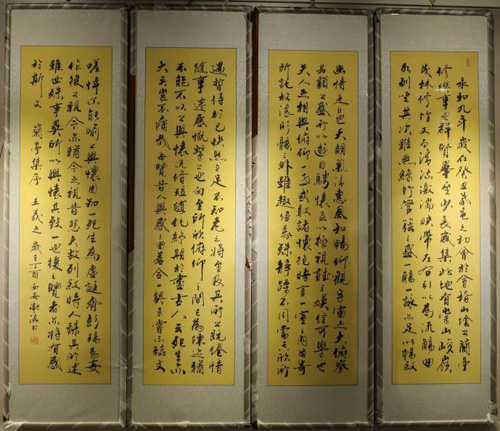 永和九年歲在癸丑暮春之初會於會稽山陰之蘭亭
修禊事也群賢畢至少長咸集此地有崇山峻嶺
茂林修竹又有清流激湍映帶左右引以為流觴曲
水列坐其次雖無絲竹管弦之盛一觴一詠亦足以暢敘
幽情是日也天朗氣清惠風和暢仰觀宇宙之大俯察
品類之盛所以遊目騁懷足以極視聽之娛信可樂也
夫人之相與俯仰一世或取諸懷抱悟言一室之內或因寄
所託放浪形骸之外雖趣舍萬殊靜躁不同當其欣於所
遇暫得於己快然自足不知老之將至及其所之既倦情
隨事遷感慨繫之矣向之所欣俯仰之間已為陳迹猶
不能不以之興懷況修短隨化終期於盡古人云死生亦
大矣豈不痛哉每覽昔人興感之由若合一契未嘗不臨文
嗟悼不能喻之於懷固知一死生為虛誕齊彭殤為妄
作後之視今亦猶今之視昔悲夫故列敘時人錄其所述
雖世殊事異所以興懷其致一也後之覽者亦將有感
於斯文 蘭亭集序 王羲之 歲丁酉西安